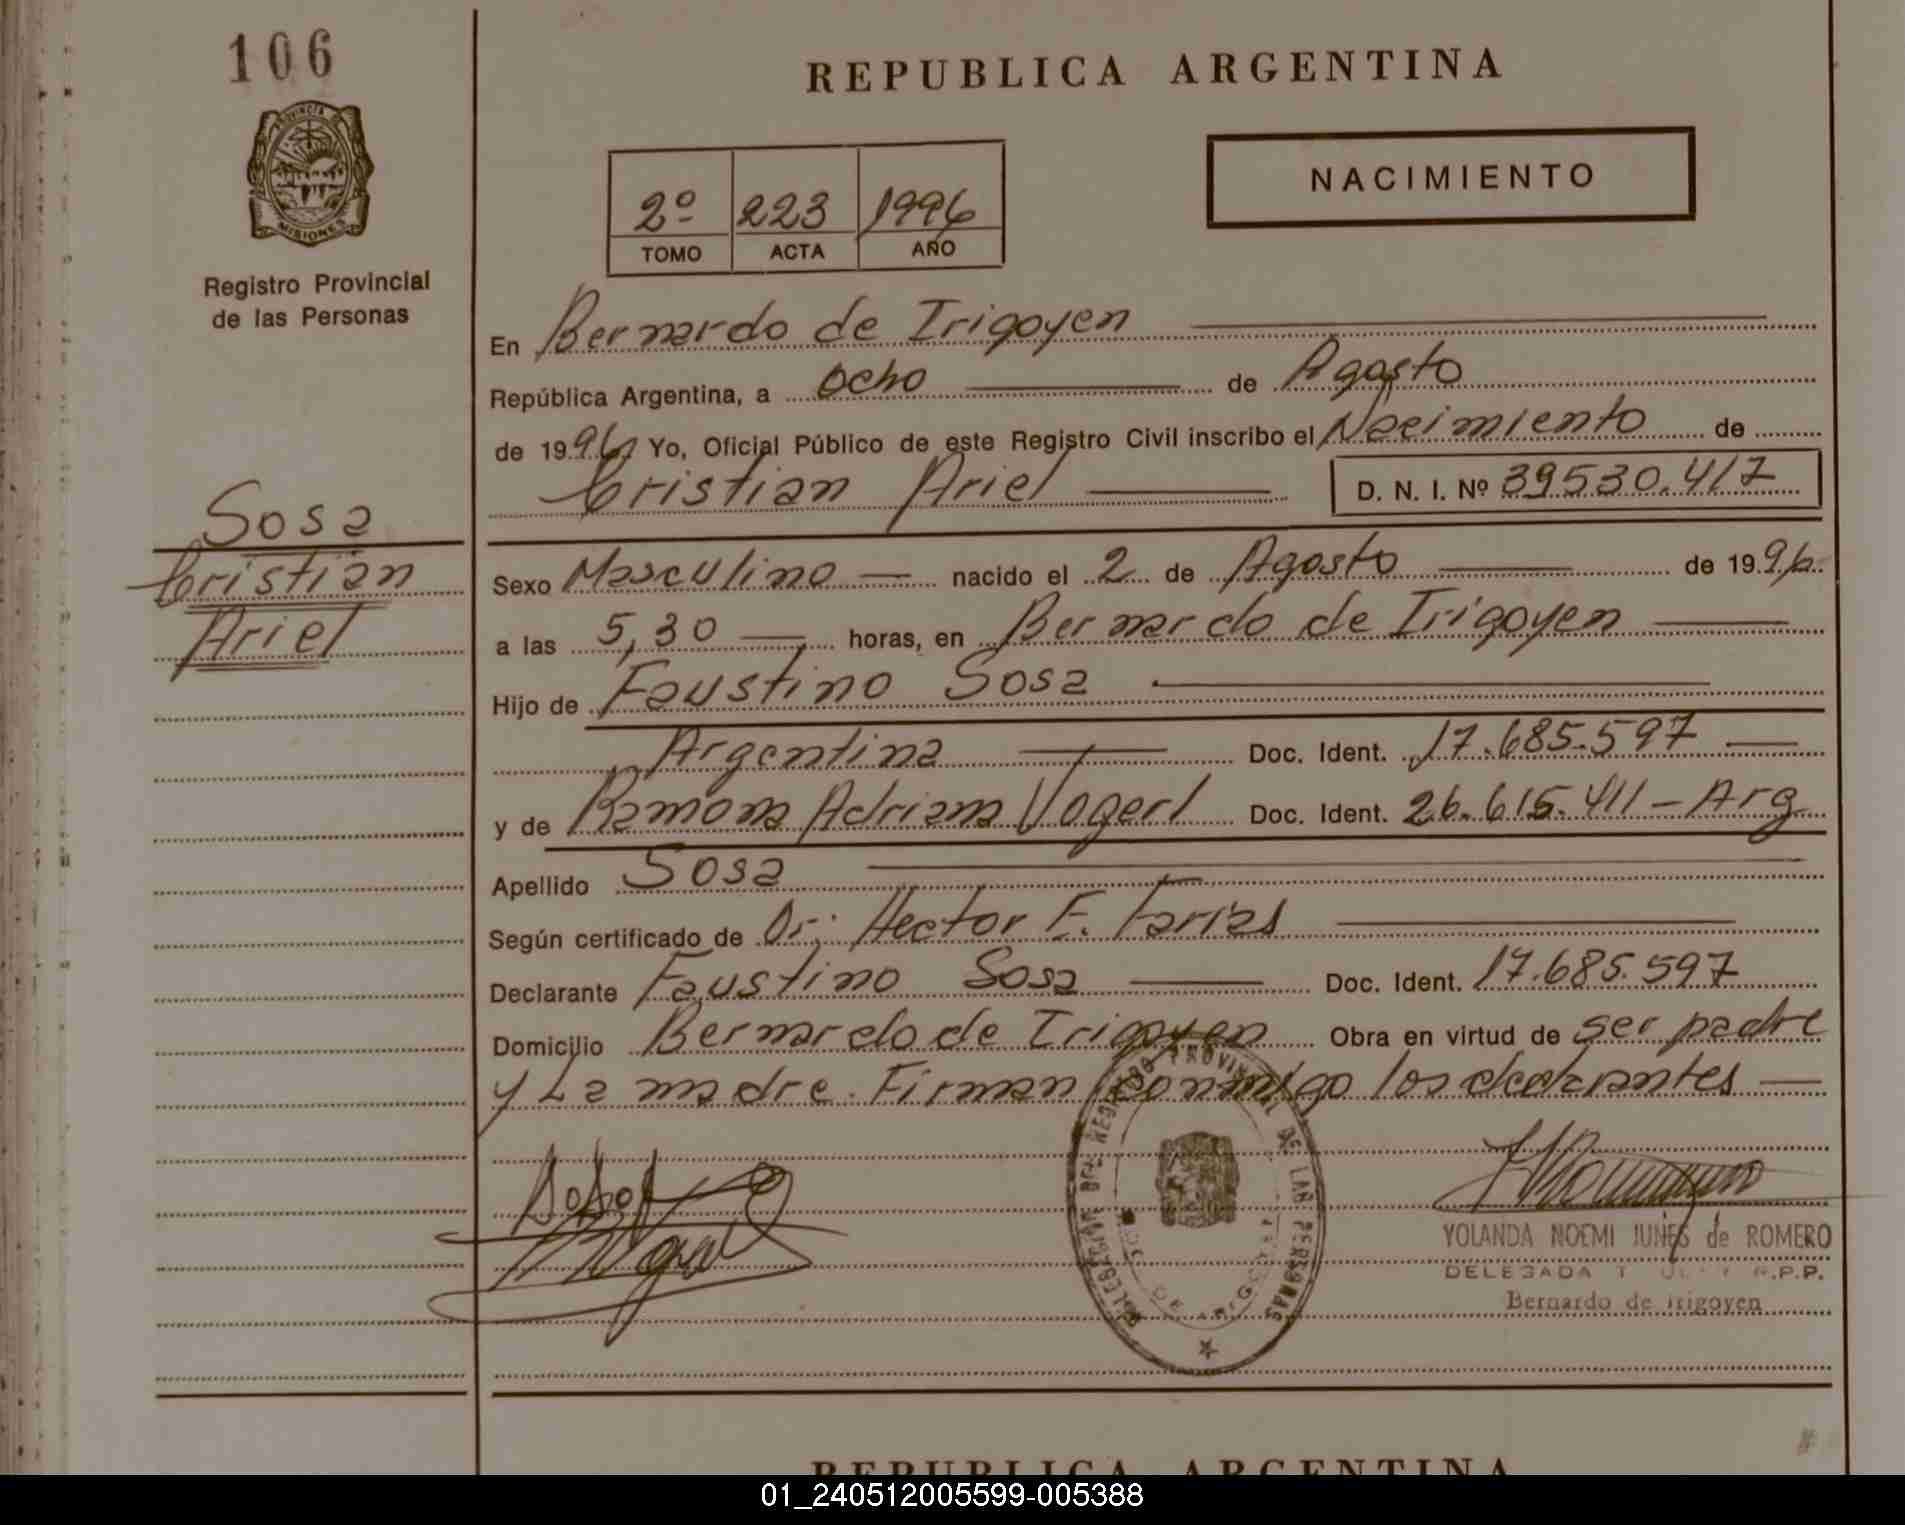 106
REPUBLICA ARGENTINA
PROVINCIA DE
MISIONES
NACIMIENTO
2º 223 1996
TOMO ACTA AÑO
Registro Provincial
de las Personas
En Bernardo de Irigoyen
República Argentina, a ocho de Agosto
de 1996 Yo, Oficial Público de este Registro Civil inscribo el Nacimiento de
Cristian Ariel D. N. I. Nº 39530.417
Sosa
Cristian
Ariel
Sexo Masculino nacido el 2 de Agosto de 1996
a las 5,30 horas, en Bernardo de Irigoyen
Hijo de Faustino Sosa
Argentina Doc. Ident. 17.685.597
y de Ramona Adriana Vogerl Doc. Ident. 26.615.411 - Arg
Apellido Sosa
Según certificado de Dr. Hector F. Farias
Declarante Faustino Sosa Doc. Ident. 17.685.597
Domicilio Bernardo de Irigoyen Obra en virtud de ser padre
y La madre. Firman conmigo los declarantes
DELEGACION DEL REGISTRO PROVINCIAL DE LAS PERSONAS
YOLANDA NOEMI JUNES de ROMERO
DELEGADA R.P.P.
Bernardo de Irigoyen
REPUBLICA ARGENTINA
01_240512005599-005388